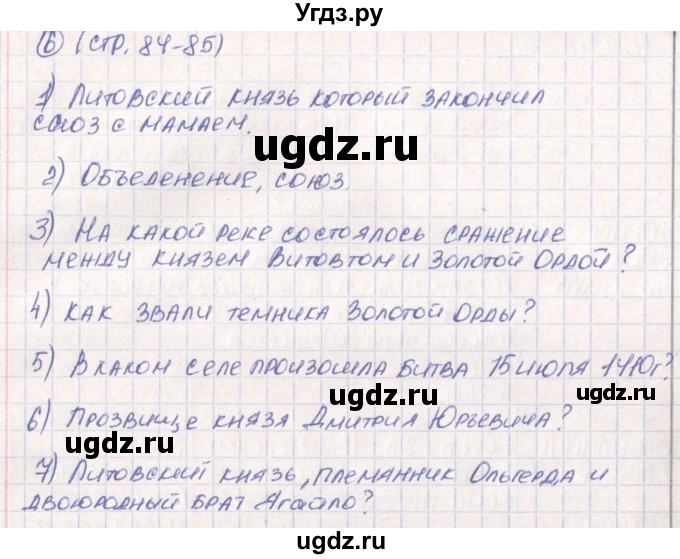 Угдз.ру
6 (стр. 84-85)
1) Литовский князь который закончил
союз с Мамаем.
ugdz.ru
2) Объеденение, союз.
3) На какой реке состоялось сражение
между князем Витовтом и Золотой Ордой?
4) Как звали темника Золотой Орды?
ugdz.ru
5) В каком селе произошла битва 15 июля 1410г?
6) Прозвище князя Дмитрия Юрьевича?
ugdz.ru
7) Литовский князь, племанник Ольгерда и
двоюродный брат Ягайло?
ugdz.ru